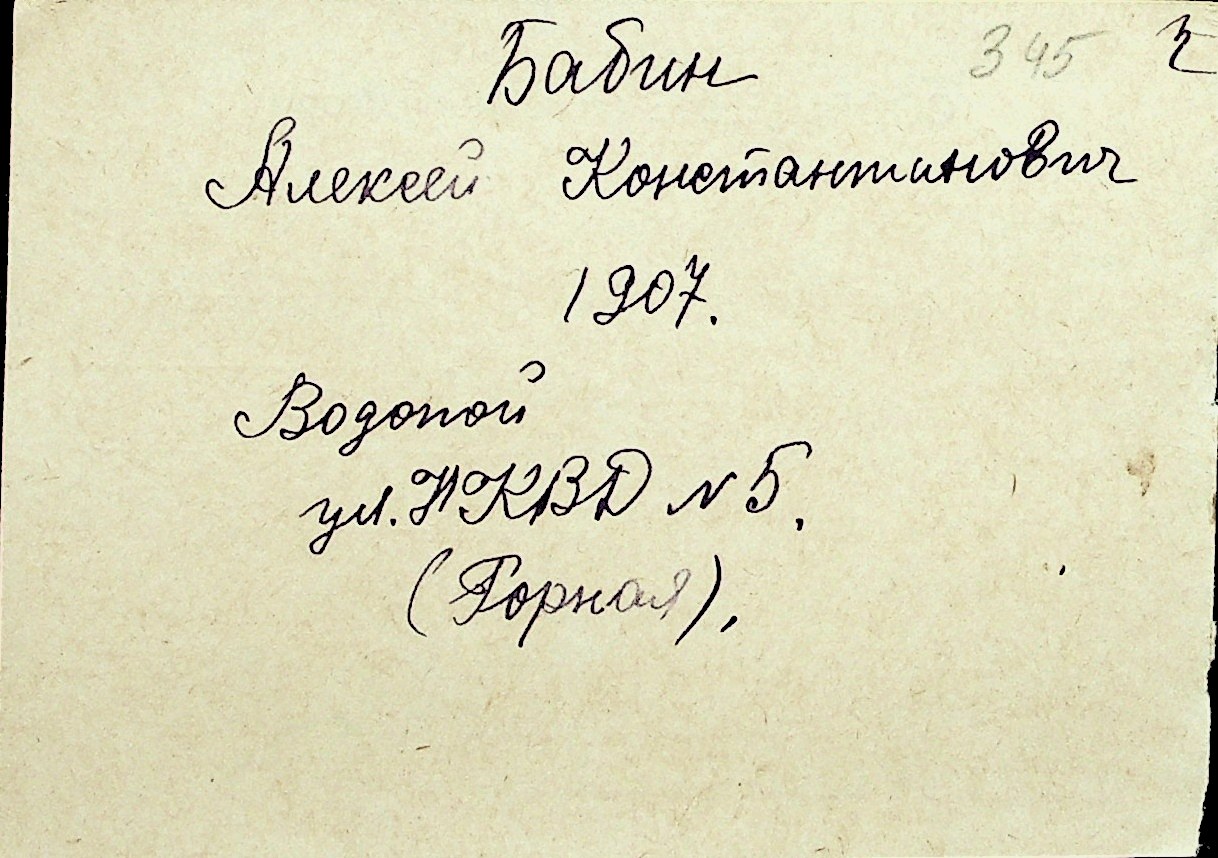 Бабин 345
Алексей Константинович
1907.
Водопой
ул. НКВД № 5.
(Горная),